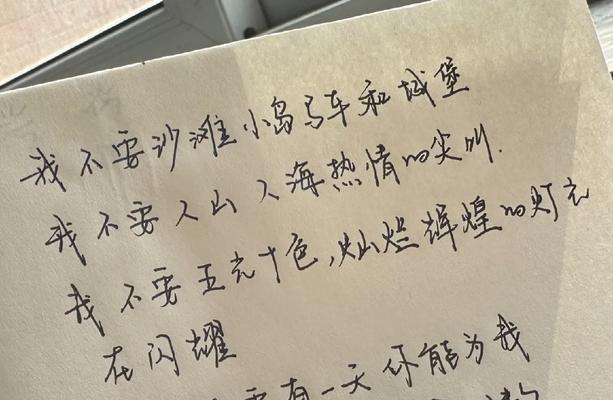 我不要沙滩小岛马车和城堡
我不要人山人海热情的尖叫.
我不要五光十色,灿烂辉煌的灯光
在闪耀
要有一天你能为我